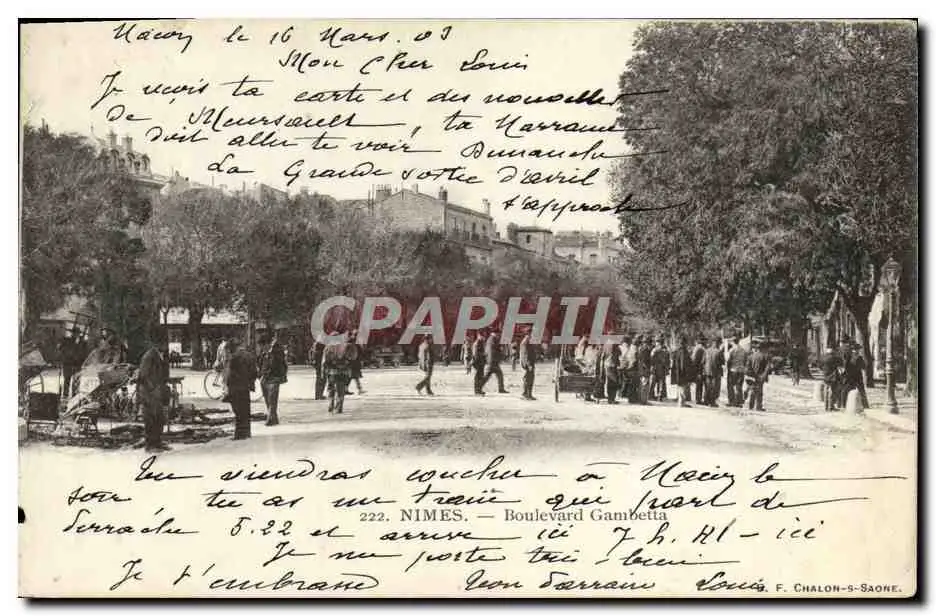 Mâcon, le 16 Mars. 03
Mon Cher Louis
Je reçois ta carte et des nouvelles
De Meursault, ta Marraine
doit aller te voir, Dimanche,
La Grande sortie d'avril
s'approche
CPAPHIL
Tu viendras coucher à Mâcon le
soir tu as un train qui part de
222. NIMES. — Boulevard Gambetta
5.22 et arrive ici 7 h. 41 - ici
Je me porte très bien
Je t'embrasse Ton Parrain Louis
B. F. CHALON-S-SAONE.